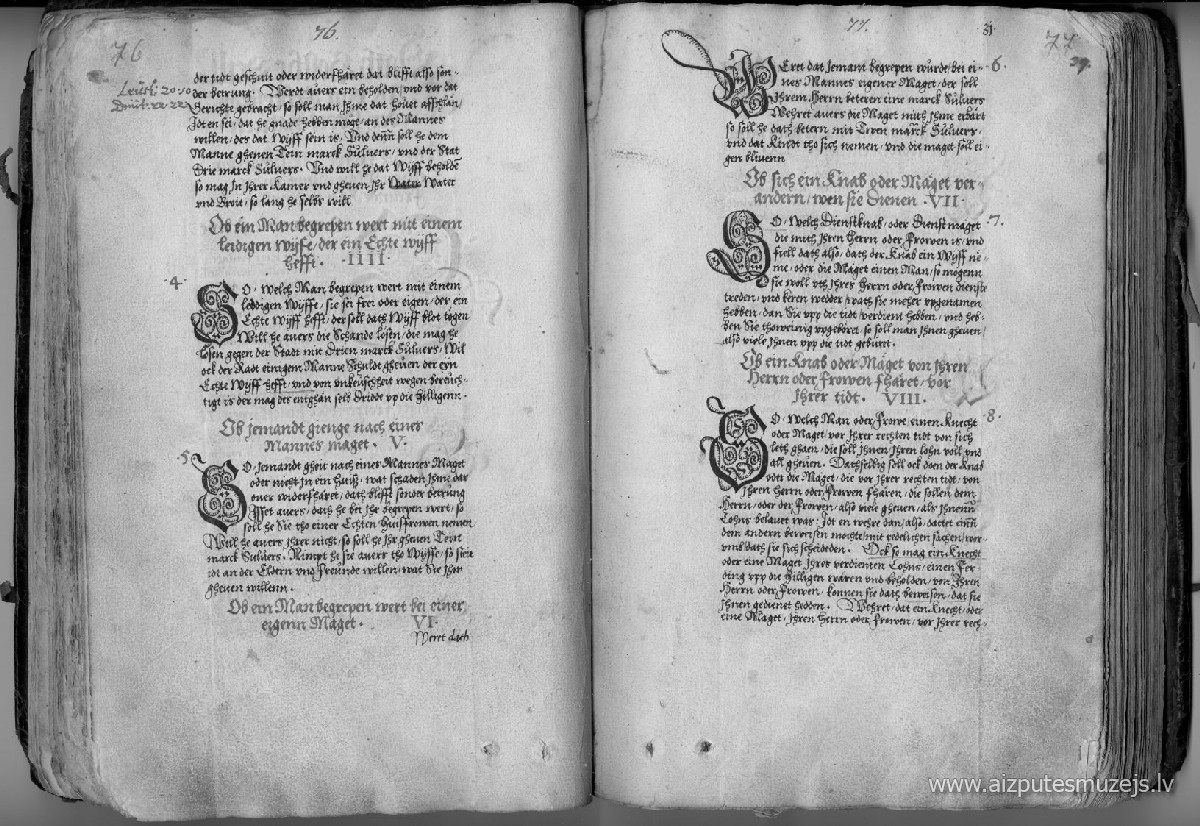 76
76.
Levit: 20. 10
Deut: 22. 22.
der tidt geschuit oder widerfharet dat blifft also son-
der betrung. Werdt auers ein beholden, und vor dat
Gerichte gebracht, so soll man Ihme dat houet affschlan,
Idt en sei, dat he gnade hebben moge, an des Mannes
willen, des dat Wyff sein is. Vnd denn soll he dem
Manne gheuen Tein marck Suluers, vnd der Stat
Drie marck Suluers. Vnd will he dat Wyff beholden
so mag In Ihrer Kamer vnd gheuen Ihr Water
vnd Brott, so lang he selbs will
Ob ein Man begrepen wert mit einem
leidigen wyfe, der ein Echte wyff
hefft. · IIII ·
4
SO. Welch Man begrepen wert mit einem
leddigen Wyffe, sie sei frei oder eigen, der ein
Echte Wyff hefft, der soll dath Wyff blot togen
Will he auers die Schande losen, die mag he
losen gegen der Stadt mit Drien marck Suluers, Wil
ock der Radt einigem Manne Schuldt gheuen der eyn
Echte Wyff hefft, vnd von vnkeuschheit wegen beruch-
tigt is der mag des entghan selb Dridde vp die hilligenn.
Ob jemandt gienge nach eines
Mannes maget. V.
5
SO Jemandt gheit nach einer Mannes Maget
oder nicht In ein Huiß, wat schaden Ihme dar
ouer widerfharet, dath blifft sonder betrung
Isset auers, dath he bei Ihr begrepen wert, so
soll he Sie tho einer Echten Huisfrowen nemen
Will he auers Ihrer nicht, so soll he Ihr gheuen Tein
marck Suluers. Nimpt he sie auerr tho Wyffe, so steit
idt an der Eldern vnd Freunde willen, wat Sie Ihr
gheuen willenn.
Ob ein Man begrepen wert bei einer
eigenn Maget. VI.
Weret dach
77.
31.
77
29.
6.
WEret dat Jemant begrepen wurdt bei ei-
nes Mannes eigener Maget, der soll
Ihrem Herrn beteren eine marck Suluers
Wehret auers die Maget mith Ihme
so soll he dath betern mit Twen marck Suluers,
vnd dat Kindt tho sich nemen, vnd die maget soll ei-
gen bliuenn
Ob sich ein Knab oder Maget ver-
andern, wen sie dienen · VII ·
7.
SO. Welch Dienstknab, oder Dienstmaget
die mith Ihren Herrn oder Frowen is, vnd
fiell dath also, dath der Knab ein Wyff ne-
me, oder die Maget einen Man, so mogenn
sie woll vth Ihres Herrn oder Frowen dienste
treden, vnd keren wedder, wath sie meher vpgenamen
hebben, dan Sie vpp die tidt verdient hebben, vnd heb-
ben Sie thoweinig vpgeboret, so soll man Ihnen gheuen,
also viele Ihnen vpp die tidt geburet.
Ob ein Knab oder Maget von Ihren
Herrn oder frowen fharet, vor
Ihrer tidt. VIII.
8.
SO. Welch Man oder Frowe einen Knecht
oder Maget, vor Ihrer rechten tidt von sich
leth ghaen, die soll Ihnen Ihren lohn voll vnd
all gheuen. Dathselbig soll ock doen der Knab
oder die Maget, die vor Ihrer rechten tidt, von
Ihren Herrn oder Frowen fharen, die sollen dem
Herrn, oder der Frowen, also viele gheuen, als Ihnenn
Lohns belauet was, Idt en wehre dan, also, dattet einn
dem andern bewisen mochte, mit redelichen saken, wor-
vmb dath sie sich scheideden. Ock so mag ein Knecht
oder eine Maget Ihres verdienten Lohns, einen Fer-
ding vpp die hilligen waren vnd beholden, von Ihren
Herrn oder Frowen, konnen sie dath bewisen, dat sie
Ihnen gedienet hedden. Wehret, dat ein Knecht, oder
eine Maget, Ihren herrn oder Frowen, vor Ihrer rech-
www.aizputesmuzejs.lv